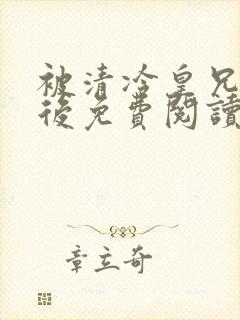 被清冷皇兄
後免費閱讀
章立奇